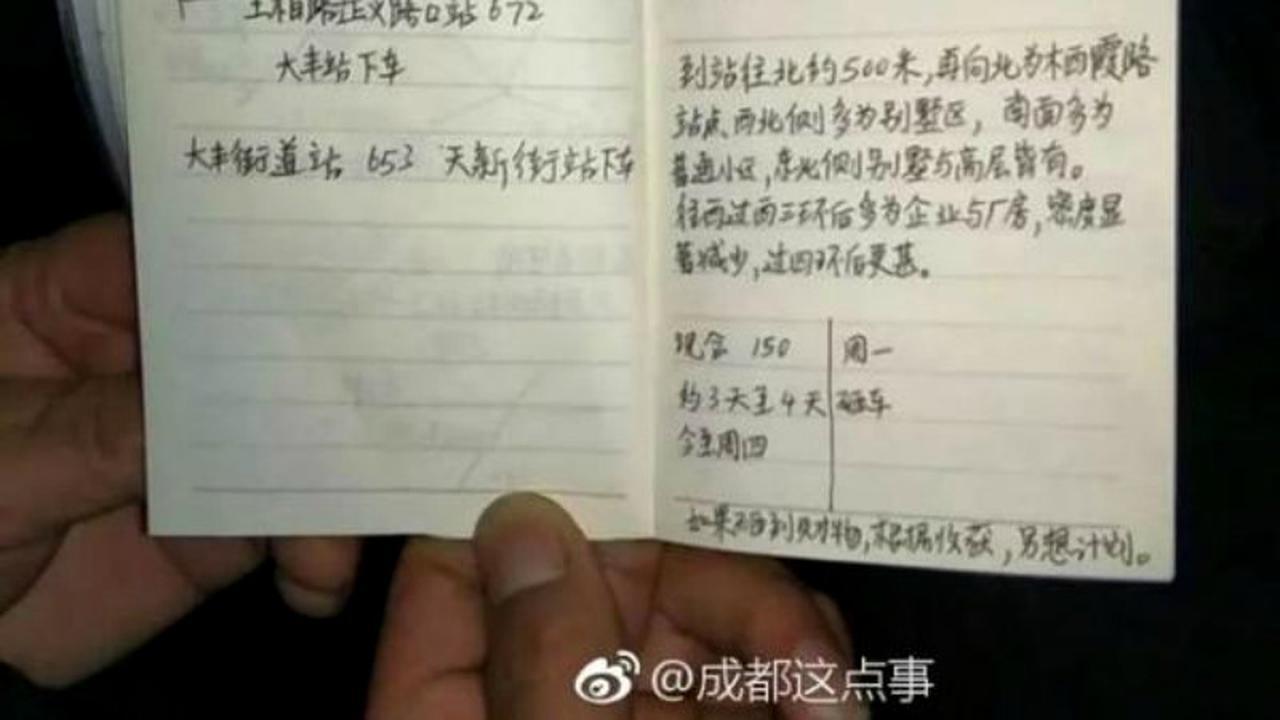 站 672
大丰站下车
大丰街道站 653 天新街站下车
到站往北约500米,再向北为栖霞路
站点西北侧多为别墅区,南面多为
普通小区,东北侧别墅与高层皆有。
往西过西三环后多为企业与厂房,密度显
著减少,过四环后更甚。
现金 150
周一
约3天至4天
砸车
今至周四
如果砸到财物,根据收获,另想计划。
@成都这点事